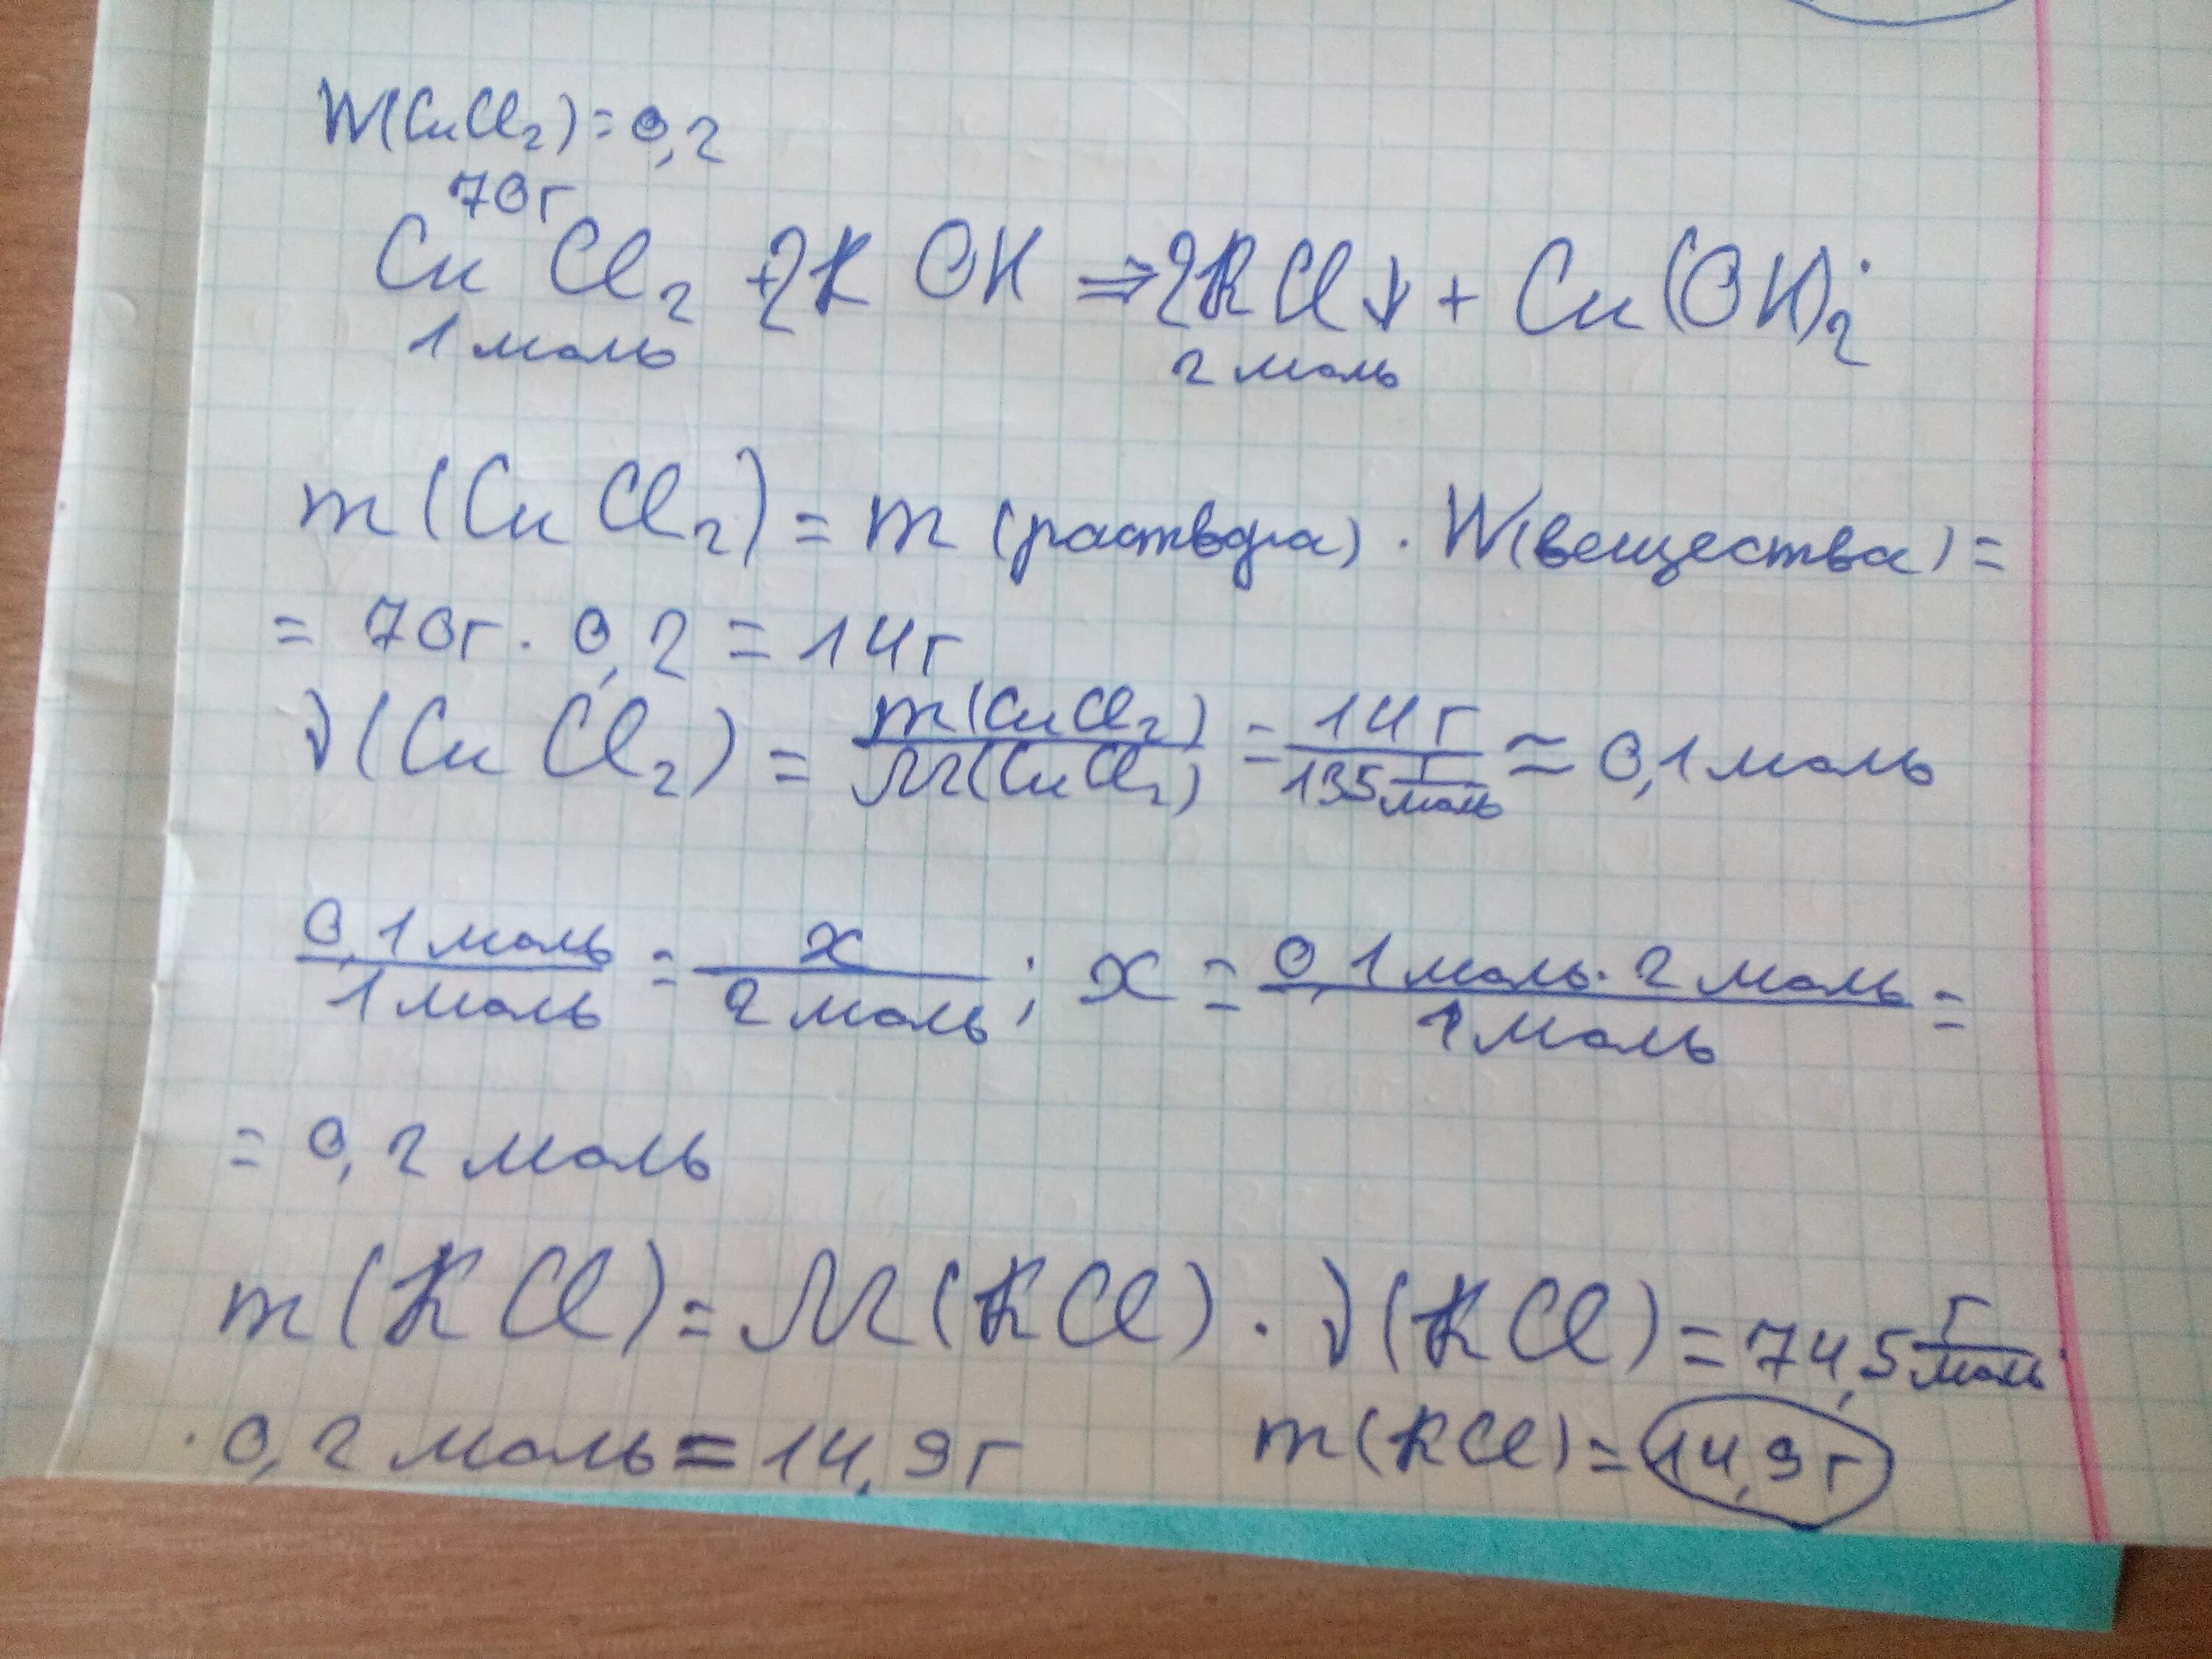 W(CuCl₂) = 0,2
70г
CuCl₂ + 2KOH ⇒ 2KCl↓ + Cu(OH)₂
1 моль 2 моль
m(CuCl₂) = m (раствора) · W(вещества) =
= 70г · 0,2 = 14г
ν(CuCl₂) = m(CuCl₂)/M(CuCl₂) = 14г/135 г/моль ≈ 0,1 моль
0,1 моль/1 моль = x/2 моль ; x = 0,1 моль · 2 моль/1 моль =
= 0,2 моль
m(KCl) = M(KCl) · ν(KCl) = 74,5 г/моль ·
· 0,2 моль = 14,9г m(KCl) = 14,9г